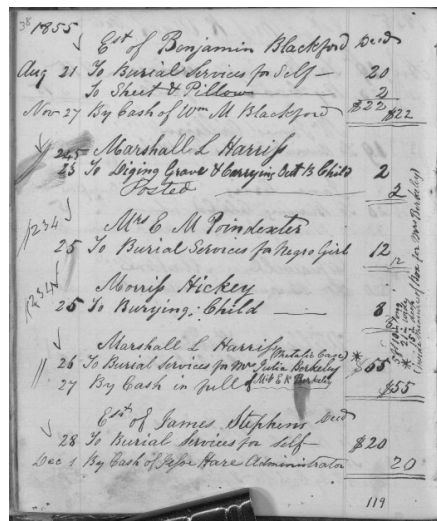 38 1855
Est of Benjamin Blackford Decd
Aug 21 To Burial Services for Self — 20
To Sheet & Pillow — 2
Nov 27 By Cash of Wm M Blackford $22 $22
Marshall L Harriss
23 To Diging Grave & Carrying Out B Child 2
Posted 2
1234
Mrs E M Poindexter
25 To Burial Services for Negro Girl 12
12
1234
Morriss Hickey
25 To Burying Child — 8
Marshall L Harriss (Metalic Case) *
26 To Burial Services for Mrs Julia Berkeley $55
27 By Cash in full of Mr E K Berkeley $55
Est of James Stephens Decd
28 To Burial Services for self $20
Dec 1 By Cash of Jesse Hare Administrator 20
119